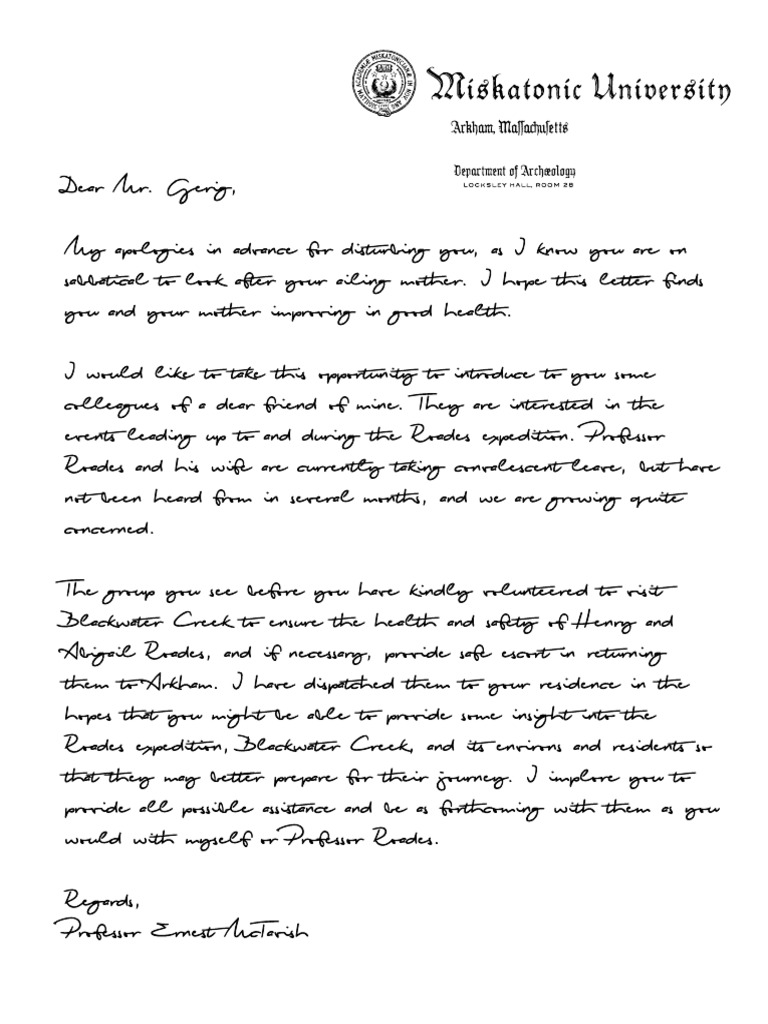 Miskatonic University
Arkham, Massachusetts
Department of Archæology
LOCKSLEY HALL, ROOM 28
Dear Mr. Gerig,
My apologies in advance for disturbing you, as I know you are on
sabbatical to look after your ailing mother. I hope this letter finds
you and your mother improving in good health.
I would like to take this opportunity to introduce to you some
colleagues of a dear friend of mine. They are interested in the
events leading up to and during the Roades expedition. Professor
Roades and his wife are currently taking convalescent leave, but have
not been heard from in several months, and we are growing quite
concerned.
The group you see before you have kindly volunteered to visit
Blackwater Creek to ensure the health and safety of Henry and
Abigail Roades, and if necessary, provide safe escort in returning
them to Arkham. I have dispatched them to your residence in the
hopes that you might be able to provide some insight into the
Roades expedition, Blackwater Creek, and its environs and residents so
that they may better prepare for their journey. I implore you to
provide all possible assistance and be as forthcoming with them as you
would with myself or Professor Roades.
Regards,
Professor Ernest McTavish